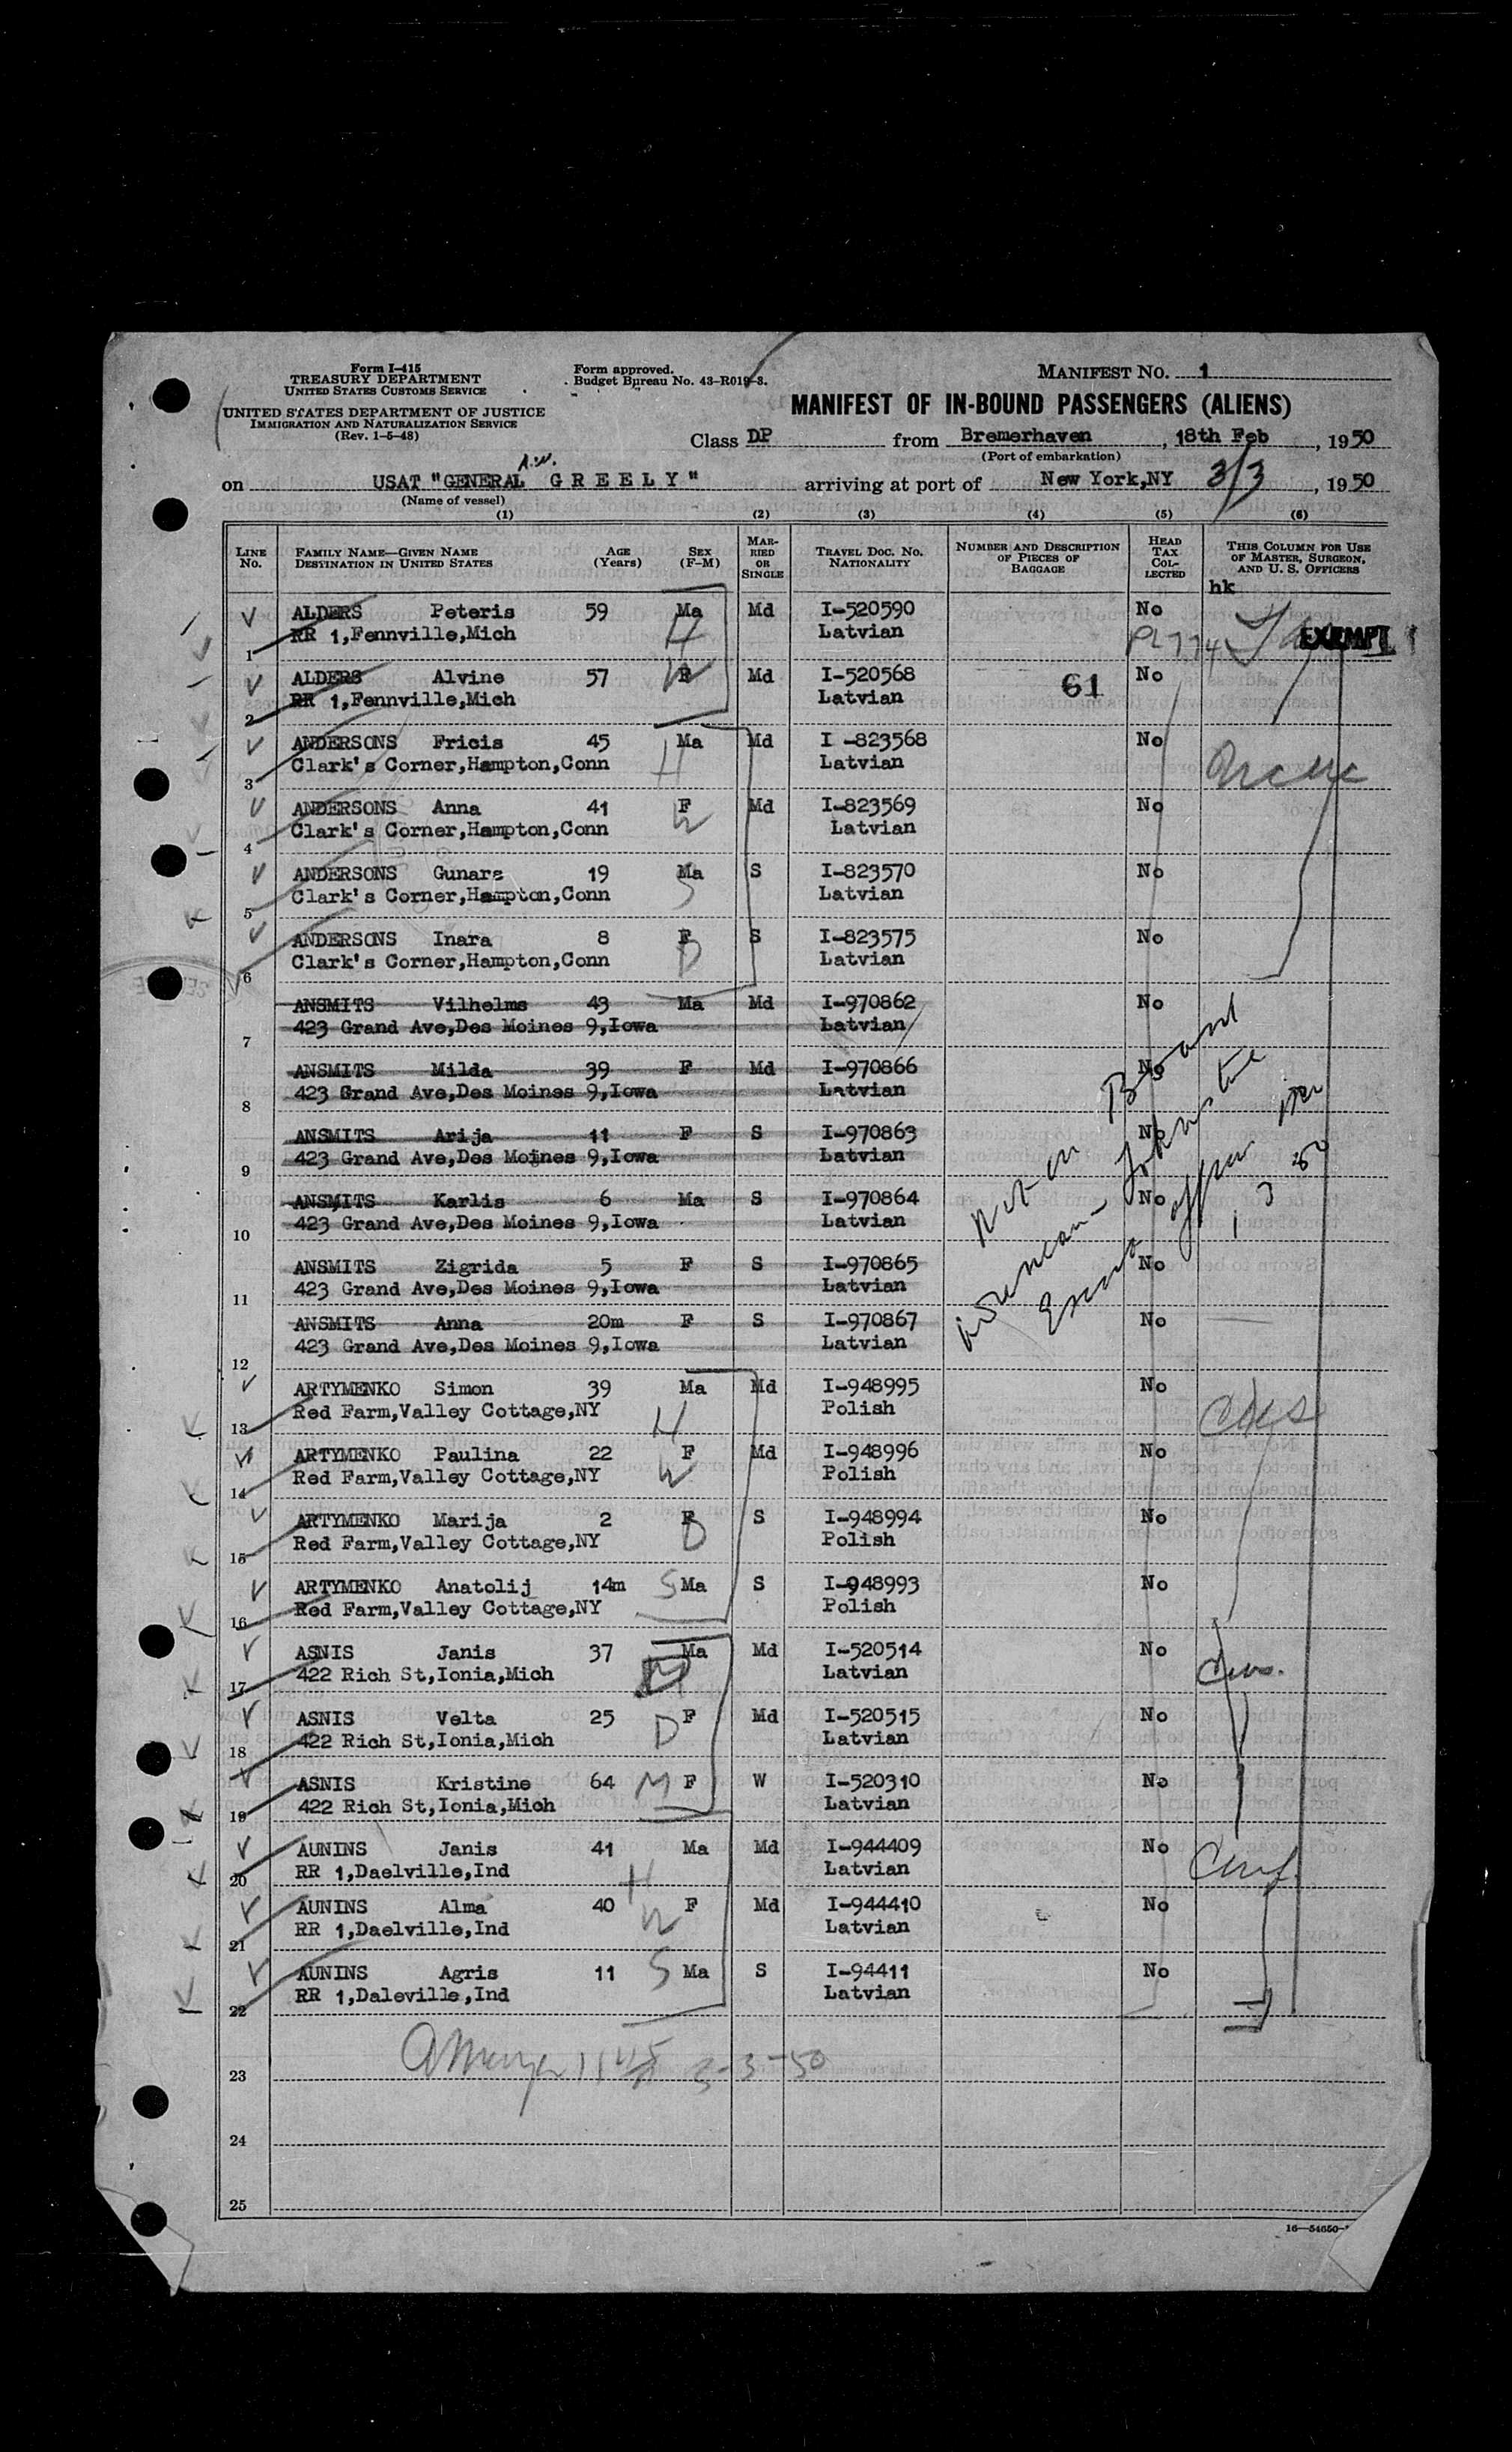 Form I-415
TREASURY DEPARTMENT
UNITED STATES CUSTOMS SERVICE
UNITED STATES DEPARTMENT OF JUSTICE
IMMIGRATION AND NATURALIZATION SERVICE
(Rev. 1-5-48)
Form approved.
Budget Bureau No. 43-R019-3.
MANIFEST NO. 1
MANIFEST OF IN-BOUND PASSENGERS (ALIENS)
Class DP from Bremerhaven, 18th Feb, 1950
(Port of embarkation)
A.W.
on USAT "GENERAL GREELY" arriving at port of New York,NY 3/3, 1950
(Name of vessel)
(1) (2) (3) (4) (5) (6)
LINE No. FAMILY NAME—GIVEN NAME DESTINATION IN UNITED STATES AGE (Years) SEX (F-M) MARRIED OR SINGLE TRAVEL DOC. NO. NATIONALITY NUMBER AND DESCRIPTION OF PIECES OF BAGGAGE HEAD TAX COLLECTED THIS COLUMN FOR USE OF MASTER, SURGEON, AND U. S. OFFICERS
hk
ALDERS Peteris 59 Ma Md I-520590 No
1 RR 1,Fennville,Mich H Latvian PL774 EXEMPT
ALDERS Alvine 57 F W Md I-520568 61 No
2 RR 1,Fennville,Mich Latvian
ANDERSONS Fricis 45 Ma Md I -823568 No
3 Clark's Corner,Hampton,Conn H Latvian
ANDERSONS Anna 41 F Md I-823569 No
4 Clark's Corner,Hampton,Conn W Latvian
ANDERSONS Gunars 19 Ma S I-823570 No
5 Clark's Corner,Hampton,Conn S Latvian
ANDERSONS Inara 8 F S I-823575 No
6 Clark's Corner,Hampton,Conn D Latvian
ANSMITS Vilhelms 43 Ma Md I-970862 No
7 423 Grand Ave,Des Moines 9,Iowa Latvian
ANSMITS Milda 39 F Md I-970866 No
8 423 Grand Ave,Des Moines 9,Iowa Latvian
ANSMITS Arija 11 F S I-970863 No
9 423 Grand Ave,Des Moines 9,Iowa Latvian
ANSMITS Karlis 6 Ma S I-970864 No
10 423 Grand Ave,Des Moines 9,Iowa Latvian
ANSMITS Zigrida 5 F S I-970865 No
11 423 Grand Ave,Des Moines 9,Iowa Latvian
ANSMITS Anna 20m F S I-970867 No
12 423 Grand Ave,Des Moines 9,Iowa Latvian
Not on Board
ARTYMENKO Simon 39 Ma Md I-948995 No
13 Red Farm,Valley Cottage,NY H Polish
ARTYMENKO Paulina 22 F Md I-948996 No
14 Red Farm,Valley Cottage,NY W Polish
ARTYMENKO Marija 2 F S I-948994 No
15 Red Farm,Valley Cottage,NY D Polish
ARTYMENKO Anatolij 14m S Ma S I-948993 No
16 Red Farm,Valley Cottage,NY Polish
ASNIS Janis 37 Ma Md I-520514 No
17 422 Rich St,Ionia,Mich Latvian
ASNIS Velta 25 F Md I-520515 No
18 422 Rich St,Ionia,Mich D Latvian
ASNIS Kristine 64 M F W I-520310 No
19 422 Rich St,Ionia,Mich Latvian
AUNINS Janis 41 Ma Md I-944409 No
20 RR 1,Daelville,Ind H Latvian
AUNINS Alma 40 F Md I-944410 No
21 RR 1,Daelville,Ind W Latvian
AUNINS Agris 11 S Ma S I-94411 No
22 RR 1,Daleville,Ind Latvian
23 3-3-50
24
25